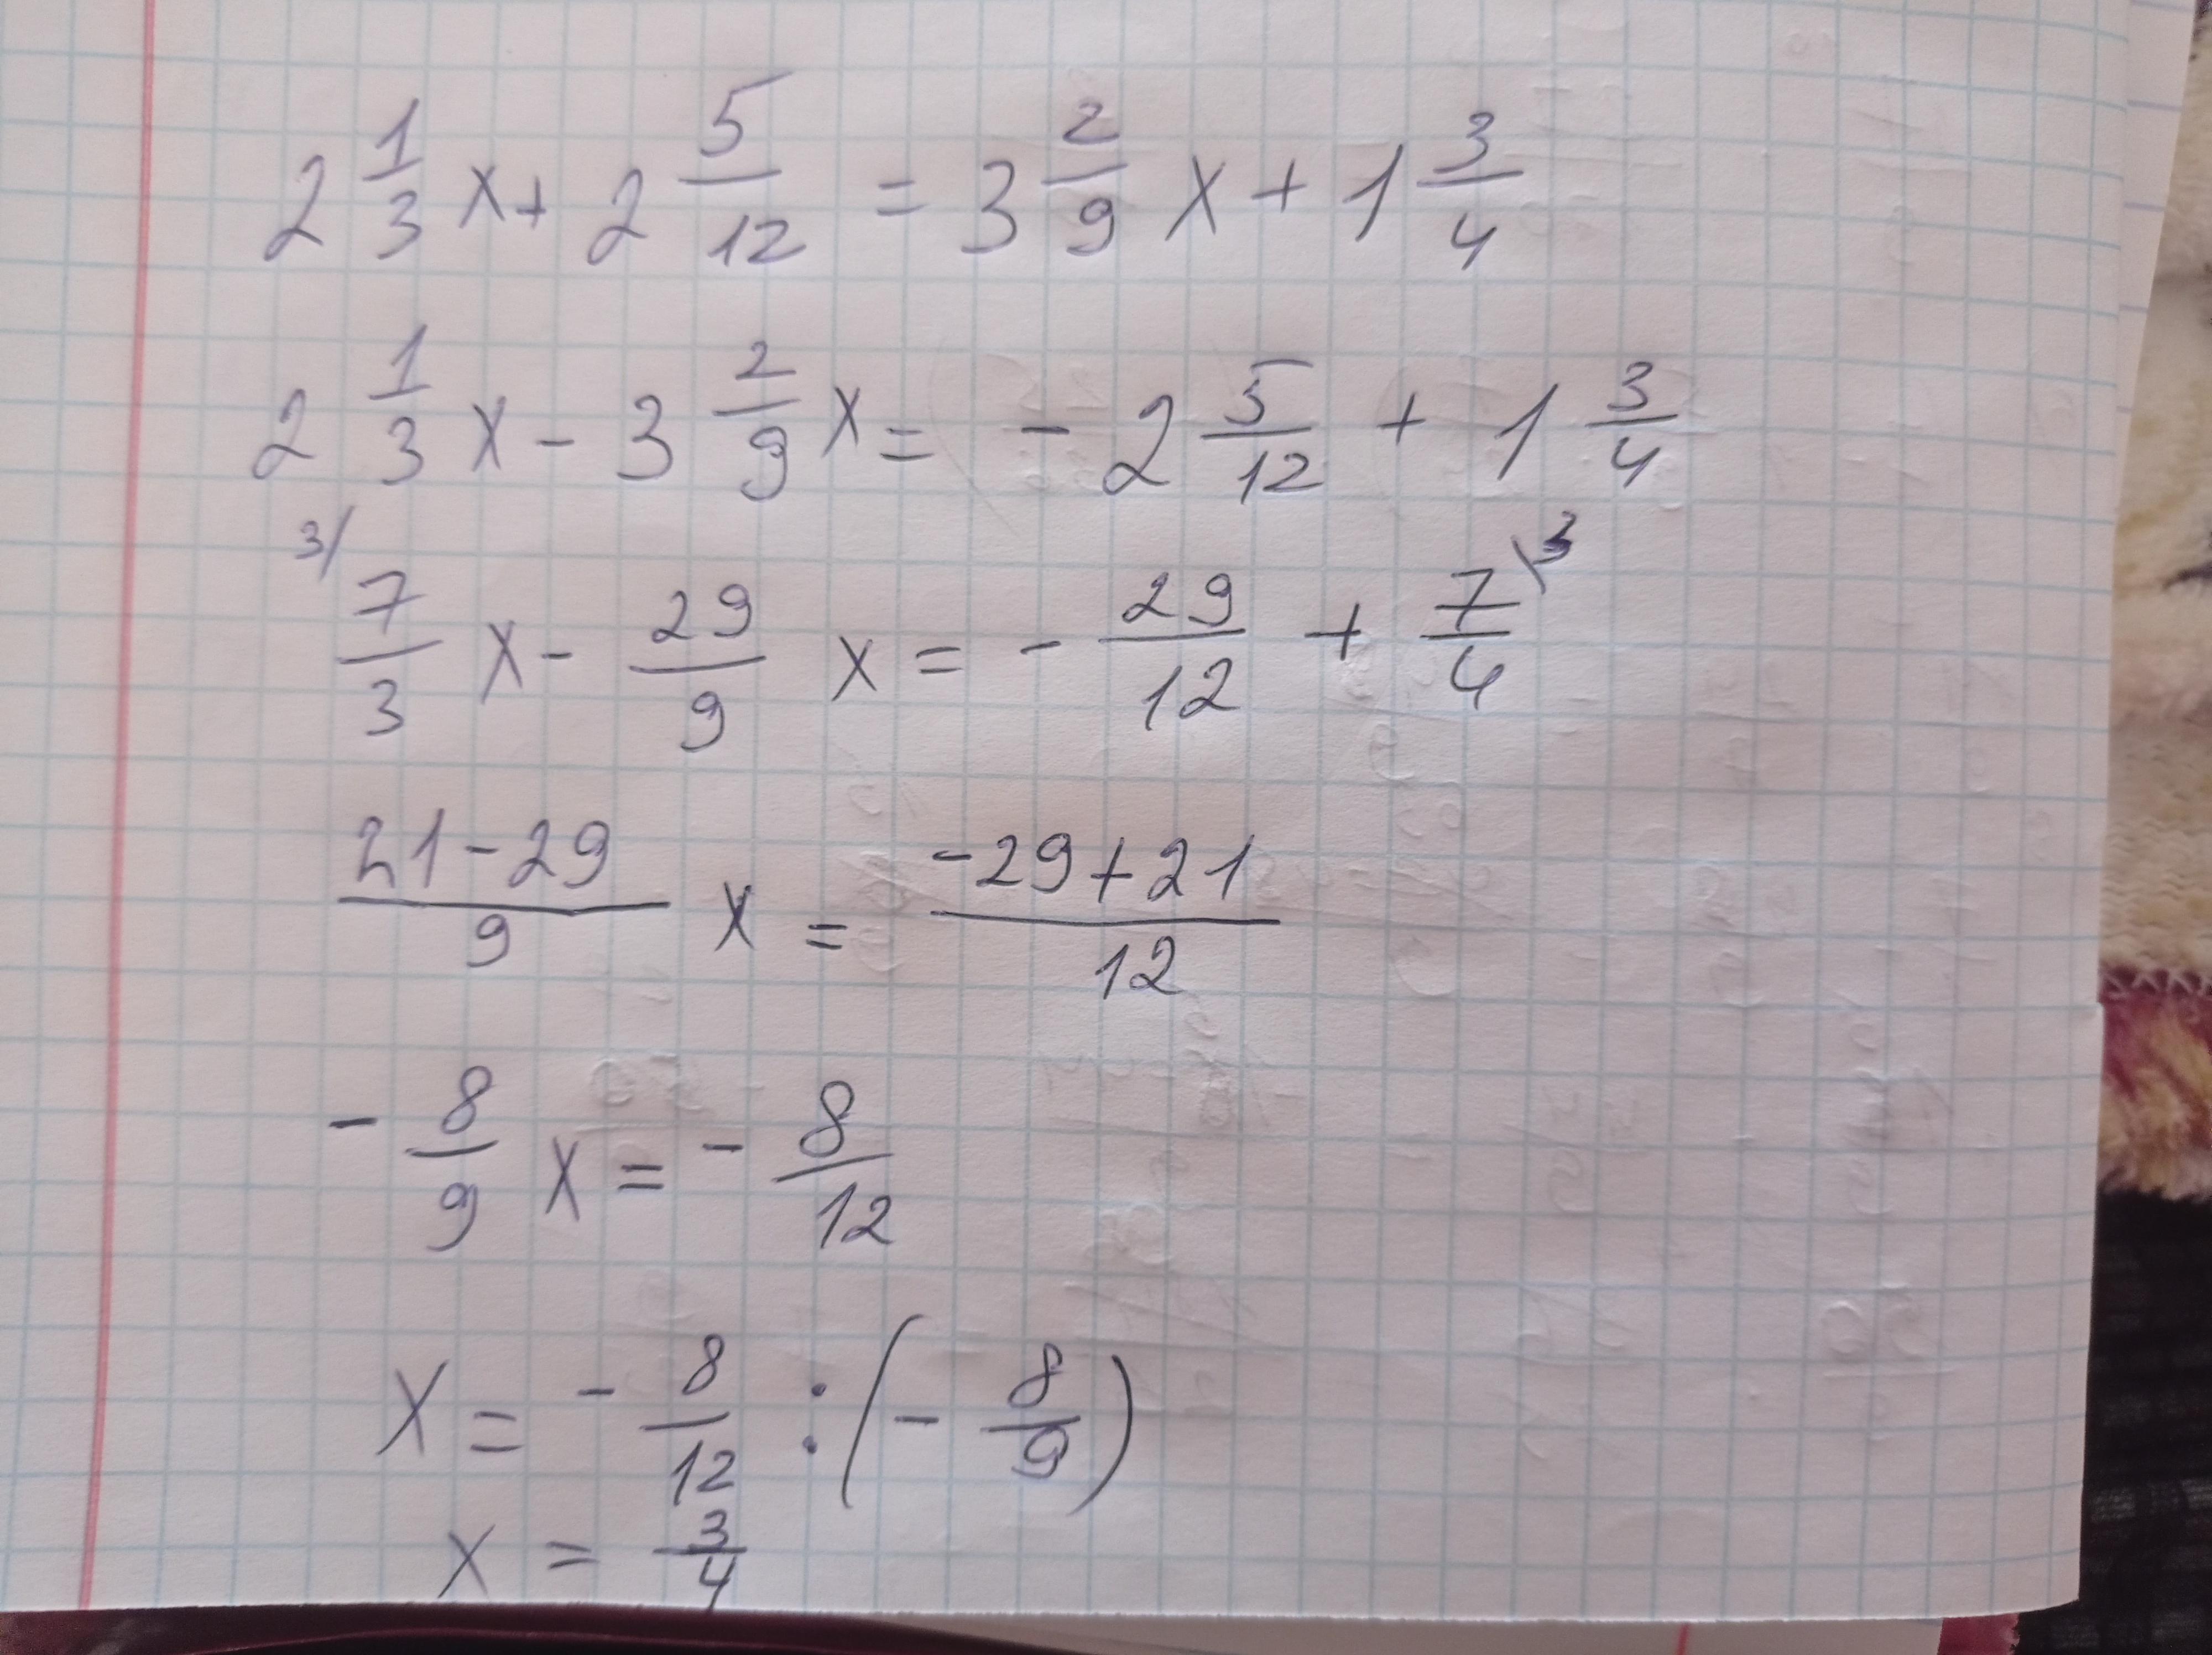 2 1/3 x + 2 5/12 = 3 2/9 x + 1 3/4
2 1/3 x - 3 2/9 x = - 2 5/12 + 1 3/4
3/ 7/3 x - 29/9 x = - 29/12 + 7/4 \3
21-29/9 x = -29+21/12
- 8/9 x = - 8/12
x = - 8/12 : (- 8/9)
x = 3/4